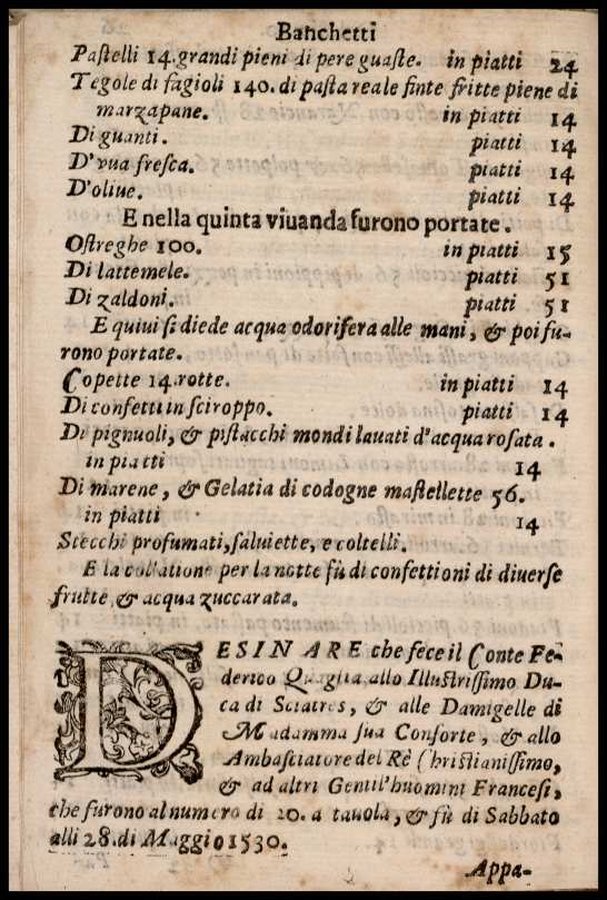 Banchetti
Pastelli 14. grandi pieni di pere guaste. in piatti 24
Tegole di fagioli 140. di pasta reale finte fritte piene di
marzapane. in piatti 14
Di guanti. piatti 14
D'vua fresca. piatti 14
D'oliue. piatti 14
E nella quinta viuanda furono portate.
Ostreghe 100. in piatti 15
Di lattemele. piatti 51
Di zaldoni. piatti 51
E quiui si diede acqua odorifera alle mani, & poi fu-
rono portate.
Copette 14. rotte. in piatti 14
Di confetti in sciroppo. piatti 14
Di pignuoli, & pistacchi mondi lauati d'acqua rosata.
in piatti 14
Di marene, & Gelatia di codogne mastellette 56.
in piatti 14
Stecchi profumati, saluiette, e coltelli.
E la collatione per la notte fù di confettioni di diuerse
frutte, & acqua zuccarata.
DESINARE che fece il Conte Fe-
derico Quaglia allo Illustrissimo Du-
ca di Sciatres, & alle Damigelle di
Madamma sua Consorte, & allo
Ambasciatore del Rè Christianissimo,
& ad altri Gentil'huomini Francesi,
che furono al numero di 20. a tauola, & fù di Sabbato
alli 28. di Maggio 1530.
Appa-